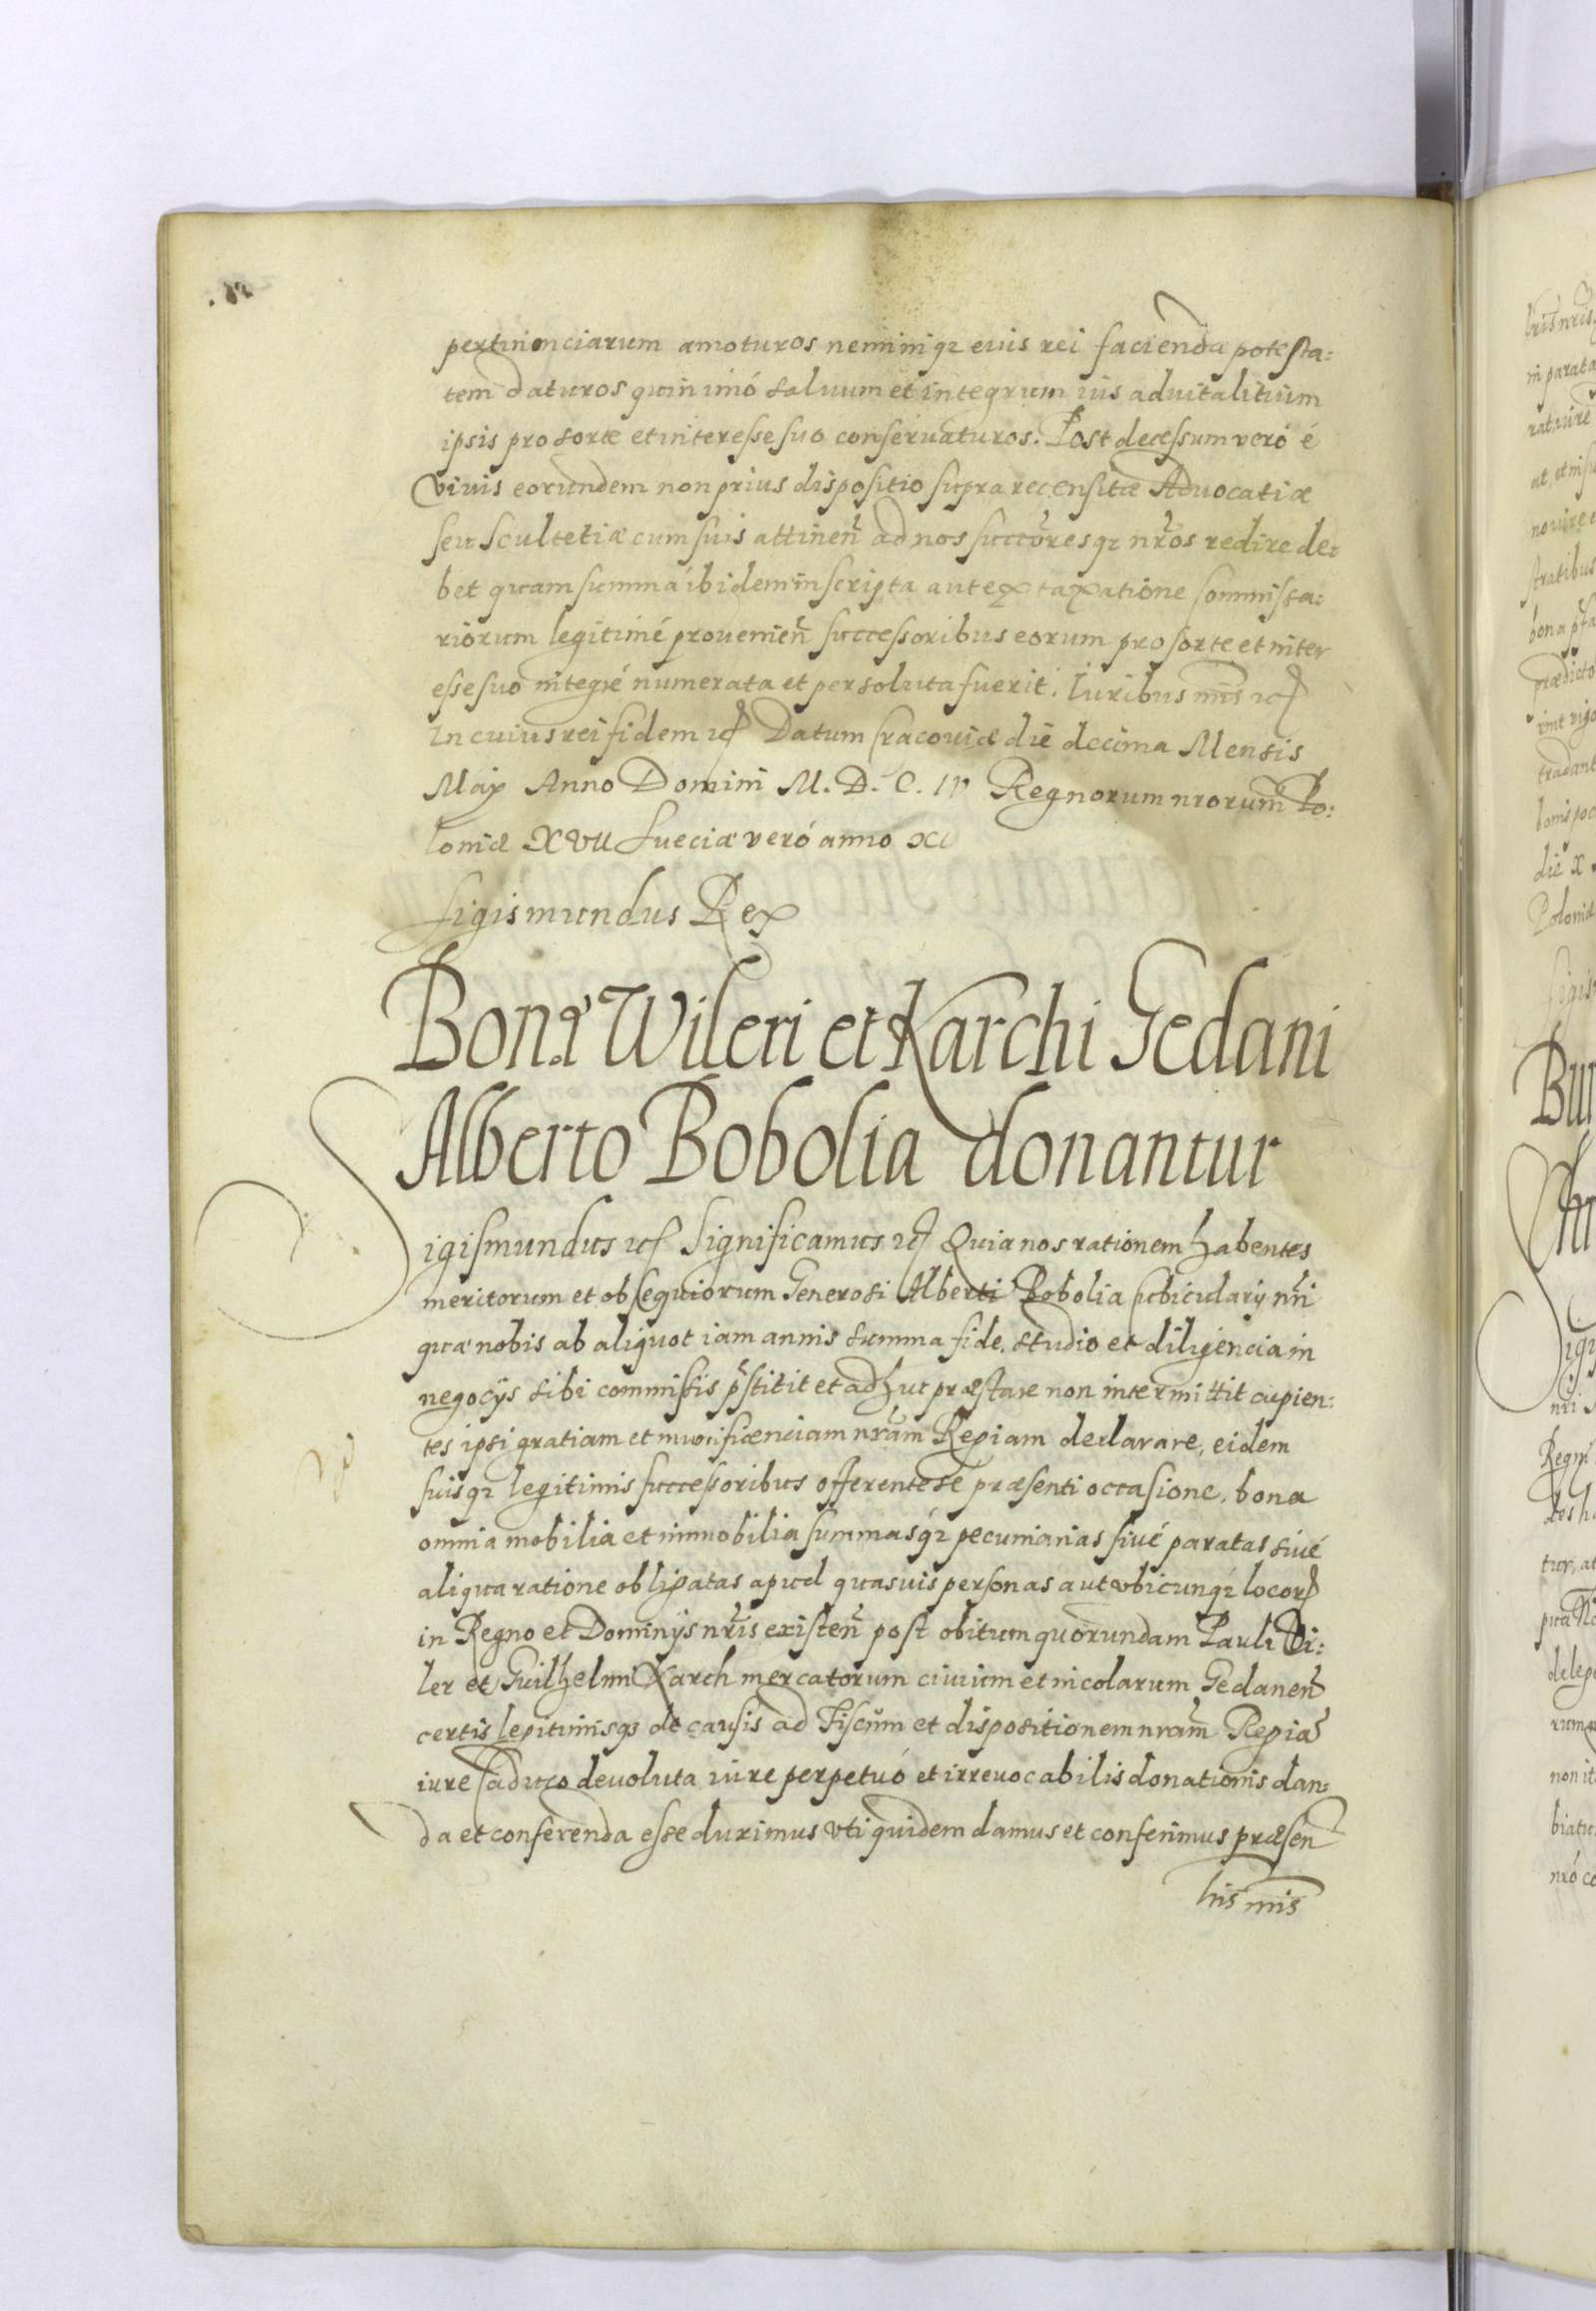 pertinenciarum amoturos neminiq₃ eius rei faciendæ potesta:
tem daturos quin imó saluum et integrum ius aduitalitium
ipsis pro sorte et interesse suo conseruaturos. Post decessum veró é
viuis eorundem non prius dispositio supra recensitæ Aduocatiæ
seu Scultetiæ cum suis attinen̄ ad nos succ̄oresq₃ nr̄os redire de:
bet quam summa ibidem inscripta aut ex taxatione Commissa:
riorum legitimé prouenien̄ successoribus eorum pro sorte et inter
esse suo integré numerata et persoluta fuerit. Iuribus nr̄is etc
In cuius rei fidem etc Datum Cracouiæ die decima Mensis
Maij Anno Domini M. D. C. IV Regnorum nrorum̄ Po:
loniæ XVII Sueciæ veró anno XI
Sigismundus Rex
Bonaꝝ Wileri et Karchi Gedani
Alberto Bobolia donantur
Sigismundus etc Significamus etc Quia nos rationem habentes
meritorum et obsequiorum Generosi Alberti Bobolia subicularij nr̄i
quæ nobis ab aliquot iam annis summa fide, studio et diligencia in
negocijs sibi commissis pr̄stitit et adhuc præstare non intermittit cupien:
tes ipsi gratiam et munificenciam nrām Regiam declarare, eidem
suisq₃ legitimis successoribus offerente se præsenti occasione, bona
omnia mobilia et immobilia summasq₃ pecuniarias siué paratas siué
aliqua ratione obligatas apud quasuis personas aut vbicunq₃ locoꝝ
in Regno et Dominijs nr̄is existen̄ post obitum quorundam Pauli Vi:
ler et Guilhelmi Karch mercatorum ciuium et incolarum Gedanen̄
certis legitimisq₃ de causis ad Fiscum et dispositionem nram̄ Regiā
iure Caduco deuoluta iure perpetuó et irreuocabilis donationis dan:
da et conferenda esse duximus vti quidem damus et conferimus præsen
his nr̄is